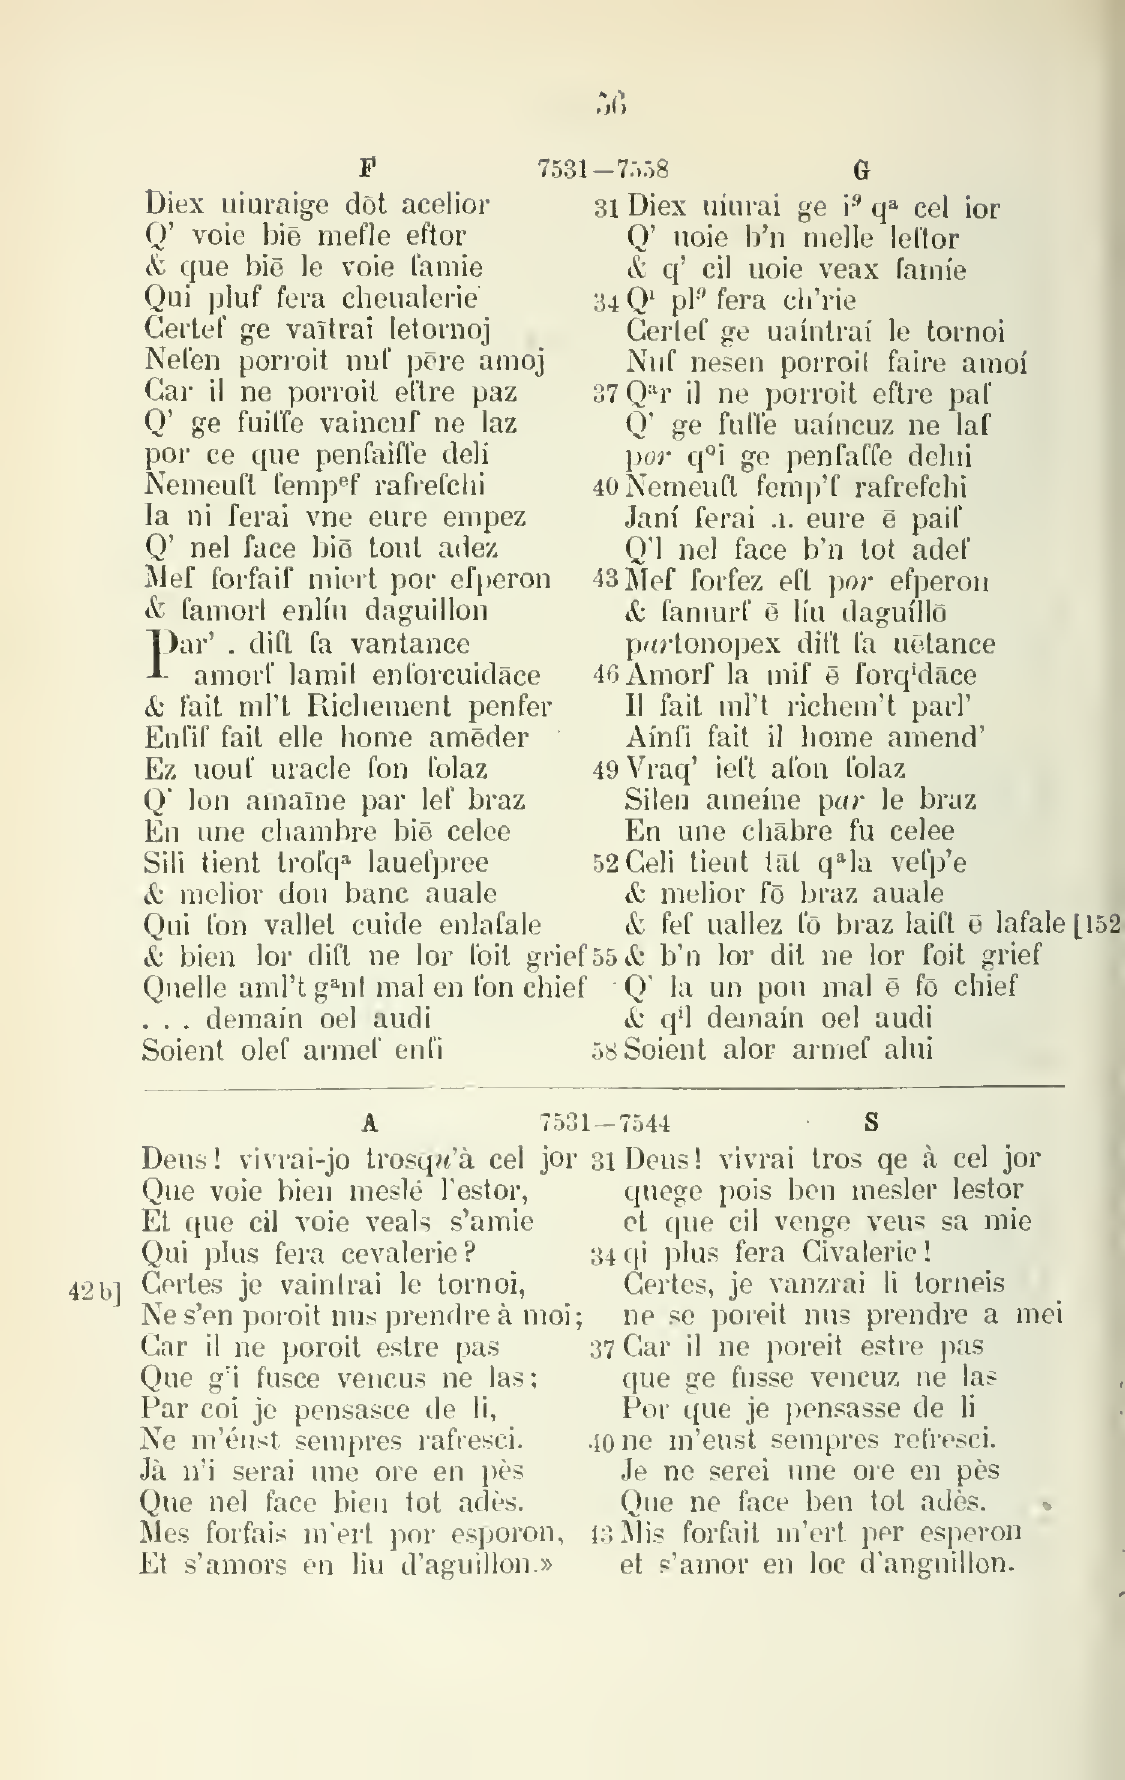 56
F 7531—7558 G
Diex uiuraige dōt acelior
Q’ voie biē mefle eftor
& que biē le voie ſamie
Qui pluſ fera cheualerie
Certeſ ge vaītrai letornoj
Neſen porroit nuſ pēre amoj
Car il ne porroit eſtre paz
Q’ ge fuiſſe vaincuſ ne laz
por ce que penſaiſſe deli
Nemeuſt ſempᵉſ rafreſchi
Ia ni ſerai vne eure empez
Q’ nel face biē tout adez
Meſ forfaiſ miert por eſperon
& ſamort enlíu daguillon
Par’ . diſt ſa vantance
amorſ lamit enſorcuidāce
& fait ml’t Richement penſer
Enſiſ fait elle home amēder
Ez uouſ uracle ſon ſolaz
Q’ lon amaīne par leſ braz
En une chambre biē celee
Sili tient troſqᵃ laueſpree
& melior dou banc auale
Qui ſon vallet cuide enlaſale
& bien lor diſt ne lor ſoit grief
Quelle aml’t gᵃnt mal en ſon chief
. . . demain oel audi
Soient oleſ armeſ enſi
31 Diex uíurai ge i⁹ qᵃ cel ior
Q’ uoie b’n melle leſtor
& q’ cil uoie veax ſamíe
34 Qⁱ pl⁹ fera ch’rie
Certeſ ge uaíntraí le tornoi
Nuſ nesen porroit faire amoí
37 Qᵃr il ne porroit eftre paſ
Q’ ge fuſſe uaíncuz ne laſ
por qᵒi ge penſaſſe delui
40 Nemeuſt ſemp’ſ rafreſchi
Janí ſerai .ı. eure ē paiſ
Q’l nel face b’n tot adeſ
43 Meſ forfez eſt por eſperon
& ſamurſ ē líu daguíllō
partonopex diſt ſa uētance
46 Amorſ la miſ ē ſorqⁱdāce
Il fait ml’t richem’t parl’
Aínſi fait il home amend’
49 Vraq’ ieſt aſon ſolaz
Silen ameíne par le braz
En une chābre fu celee
52 Celi tient tāt qᵃla veſp’e
& melior ſō braz auale
& ſeſ uallez ſō braz laiſt ē laſale [152
55 & b’n lor dit ne lor ſoit grief
Q’ la un pou mal ē ſō chief
& qⁱl demaín oel audi
58 Soient alor armeſ alui
A 7531—7544 S
Deus! vivrai-jo trosqu’à cel jor
Que voie bien meslé l’estor,
Et que cil voie veals s’amie
Qui plus fera cevalerie?
42 b] Certes je vaintrai le tornoi,
Ne s’en poroit nus prendre à moi;
Car il ne poroit estre pas
Que g’i fusce vencus ne las;
Par coi je pensasce de li,
Ne m’éust sempres rafresci.
Jà n’i serai une ore en pès
Que nel face bien tot adès.
Mes forfais m’ert por esporon,
Et s’amors en liu d’aguillon.»
31 Deus! vivrai tros qe à cel jor
quege pois ben mesler lestor
et que cil venge veus sa mie
34 qi plus fera Civalerie!
Certes, je vanzrai li torneis
ne se poreit nus prendre a mei
37 Car il ne poreit estre pas
que ge fusse vencuz ne las
Por que je pensasse de li
40 ne m’eust sempres refresci.
Je ne serei une ore en pès
Que ne face ben tot adès.
43 Mis forfait m’ert per esperon
et s’amor en loc d’anguillon.